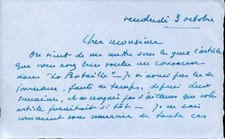 vendredi 3 octobre
Cher monsieur
On vient de me mettre sous les yeux l'article
que vous avez bien voulu me consacrer
dans "La Bataille" — Je n'avais pas lu de
journaux, faute de temps, depuis deux
semaines, et ne croyais pas d'ailleurs que votre
article paraîtrait si tôt — Je ne sais
comment vous remercier de toute cette